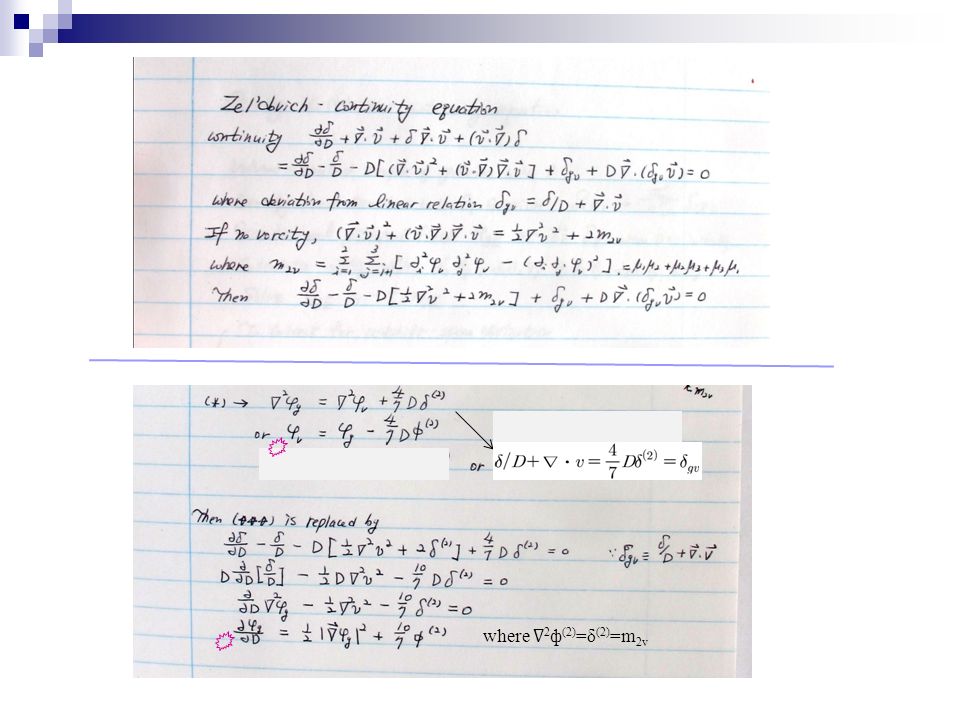 Zel'dovich - continuity equation
continuity ∂δ/∂D + ∇⃗·υ⃗ + δ∇⃗·υ⃗ + (υ⃗·∇⃗)δ
= ∂δ/∂D - δ/D - D[(∇⃗·υ⃗)² + (υ⃗·∇⃗)∇⃗·υ⃗] + δ_gυ + D∇⃗·(δ_gυ υ⃗) = 0
where deviation from linear relation δ_gυ = δ/D + ∇⃗·υ⃗
If no vorcity, (∇⃗·υ⃗)² + (υ⃗·∇⃗)∇⃗·υ⃗ = ½∇²υ² + 2m_2υ
where m_2υ = Σ_{i=1}^{2} Σ_{j=i+1}^{3} [∂_i²φ_υ ∂_j²φ_υ - (∂_i ∂_j φ_υ)²] = μ₁μ₂ + μ₂μ₃ + μ₃μ₁
Then ∂δ/∂D - δ/D - D[½∇²υ² + 2m_2υ] + δ_gυ + D∇⃗·(δ_gυ υ⃗) = 0
m_2υ
(*) → ∇²φ_g = ∇²φ_υ + 4/7 Dδ⁽²⁾
or φ_υ = φ_g - 4/7 Dϕ⁽²⁾
or δ/D+∇·v = 4/7 Dδ⁽²⁾ = δ_gv
Then (***) is replaced by
∂δ/∂D - δ/D - D[½∇²υ² + 2δ⁽²⁾] + 4/7 Dδ⁽²⁾ = 0 ∵ δ_gυ ≡ δ/D + ∇⃗·υ⃗
D ∂/∂D[δ/D] - ½D∇²υ² - 10/7 Dδ⁽²⁾ = 0
∂/∂D ∇²φ_g - ½∇²υ² - 10/7 δ⁽²⁾ = 0
∂φ_g/∂D = ½|∇⃗φ_g|² + 10/7 ϕ⁽²⁾ where ∇²ф⁽²⁾=δ⁽²⁾=m_2v